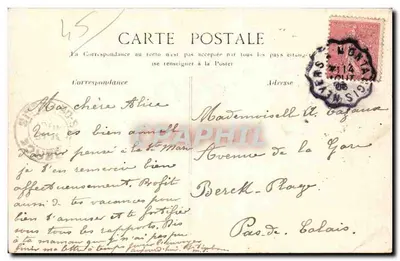 45
CARTE POSTALE
La Correspondance au recto n'est pas acceptée par tous les pays étrangers
se renseigner à la Poste
Correspondance
Adresse
MONTARGIS NEVERS
14
08
Ma chère Alice
Tu es bien
avoir pensé à la St
je t'en remercie bien
affectueusement. Profit
aussi de tes vacances pour
bien t'amuser et te fortifier
sous tous les rapports. Dis
à ta maman que j'ai pas pu
finir ma lettre à temps pour
Mademoiselle A.
Avenue de la Gare
Berck-Plage
Pas-de-Calais